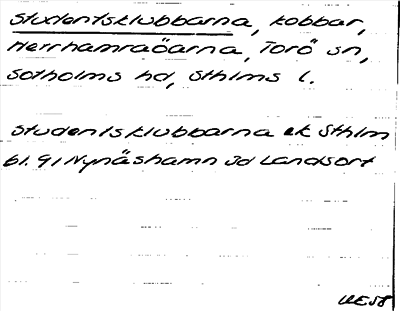 Studentsklubbarna, kobbar,
Herrhamraöarna, Torö sn,
Sotholms hd, Sthlms l.
Studentsklubbarna ek Sthlm
61.91 Nynäshamn Sd Landsort
UE58